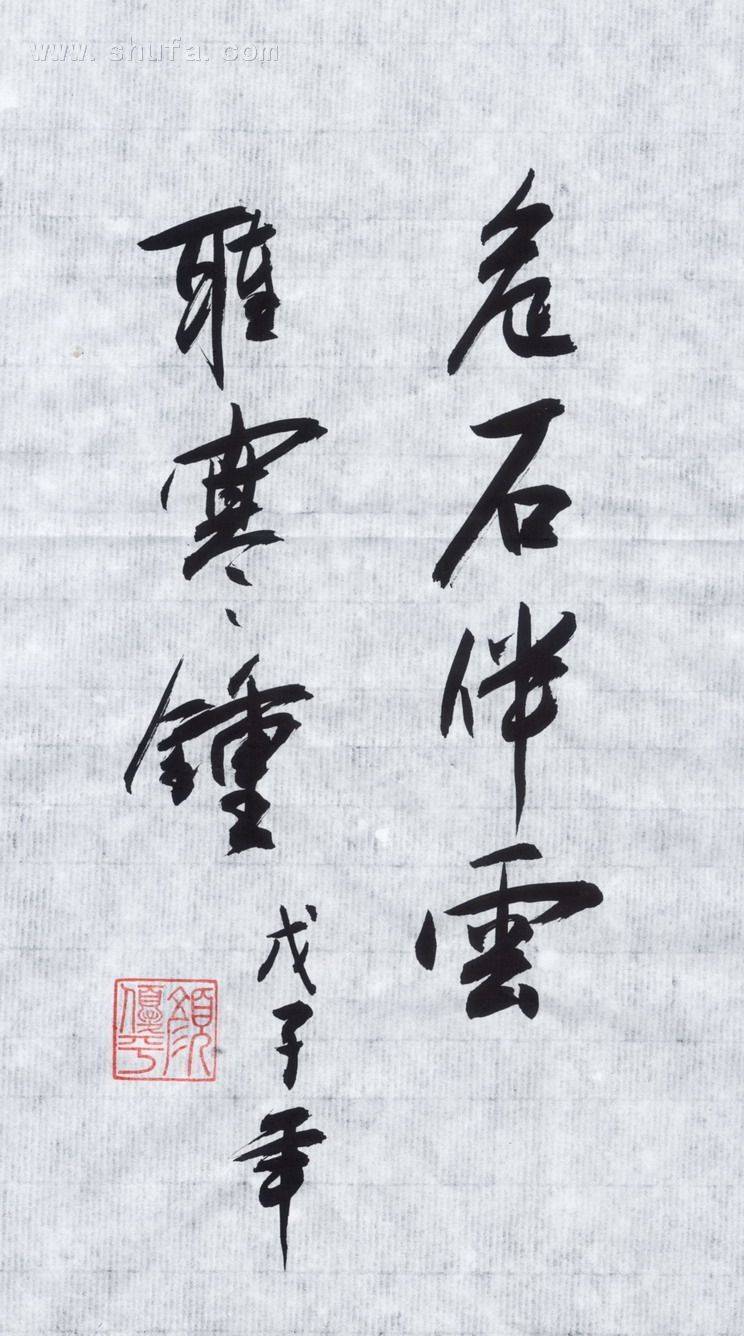 www.shufa.com
危石伴雲
聽寒鍾
戊子年